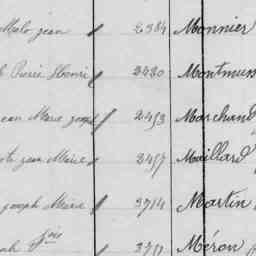 Malo jean // 2384 Monnier
Pierre Henri // 2420 Montmuss
ean Marie joseph // 2453 Marchand
jean Marie // 2457 Maillard
joseph Marie // 2714 Martin
jos // 2717 Méron